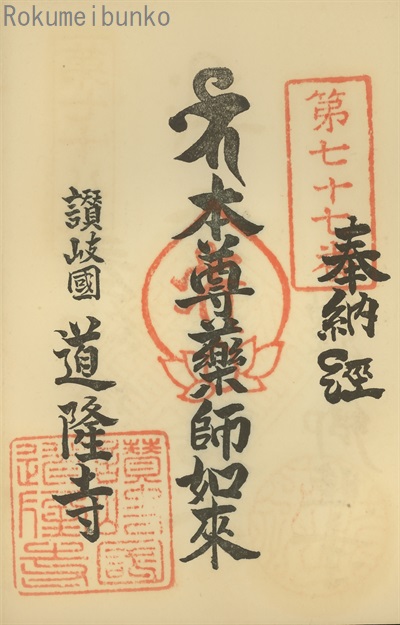 Rokumeibunko
第七十七番
奉納經
本尊藥師如來
讃岐國 道隆寺